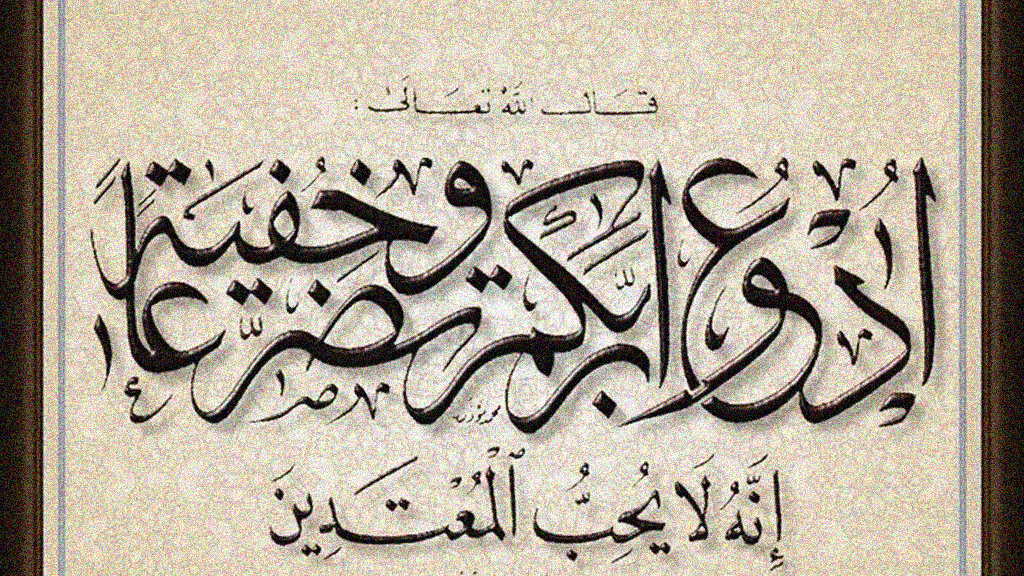 قَالَ اللَّهُ تَعَالَىٰ:
اُدْعُوا رَبَّكُمْ تَضَرُّعًا وَخُفْيَةً
إِنَّهُ لَا يُحِبُّ ٱلْمُعْتَدِينَ